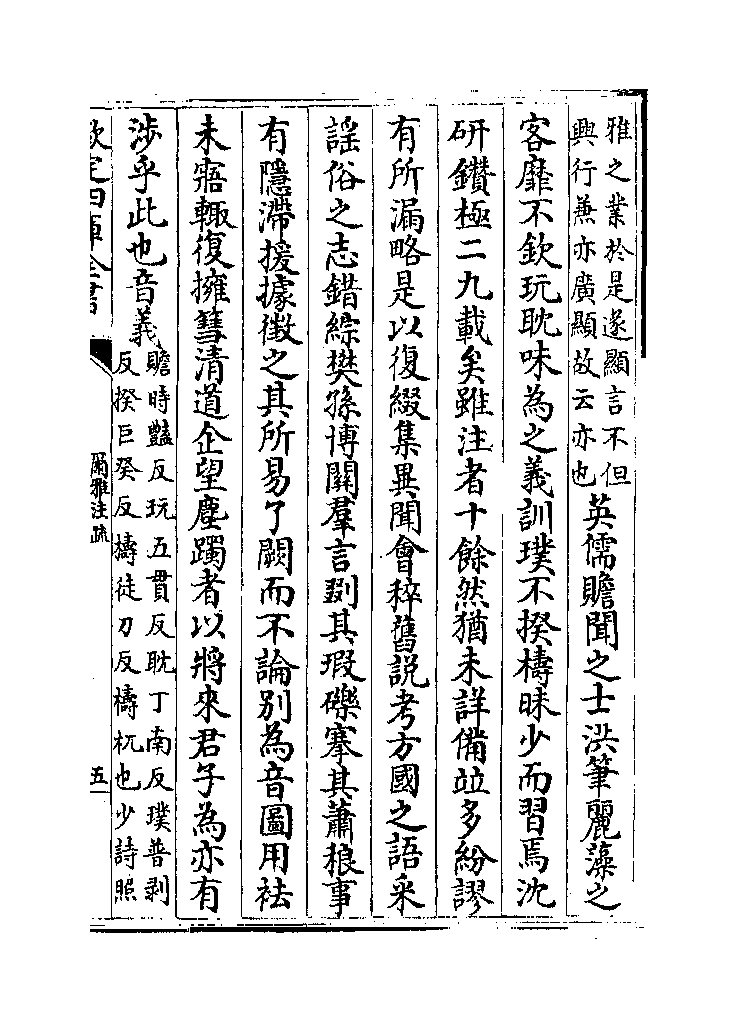 雅之業於是遂顯言不但
興行兼亦廣顯故云亦也
英儒贍聞之士洪筆麗藻之
客靡不欽玩耽味為之義訓璞不揆檮昧少而習焉沈
研鑽極二九載矣雖注者十餘然猶未詳備竝多紛謬
有所漏略是以復綴集異聞會稡舊說考方國之語采
謠俗之志錯綜樊孫博關羣言剟其瑕礫搴其蕭稂事
有隱滯援據徵之其所易了闕而不論別為音圖用袪
未寤輙復擁篲清道企望塵躅者以將來君子為亦有
涉乎此也音義
贍時豔反玩五貫反耽丁南反璞普剥
反揆巨癸反檮徒刀反檮杌也少詩照
欽定四庫全書
爾雅注疏
五